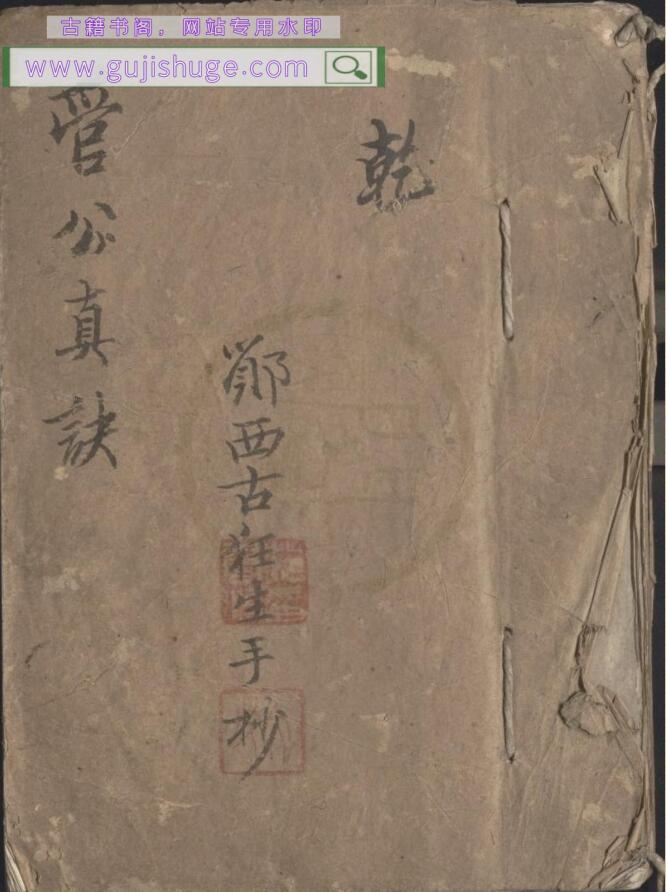 古籍书阁，网站专用水印
www.gujishuge.com
乾
鄖西古狂生手抄
管公真訣